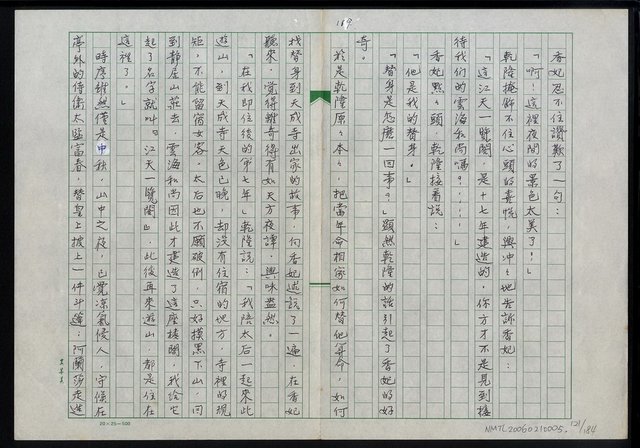 189
香妃忍不住讚歎了一句:
「啊!這裡夜間的景色太美了!」
乾隆掩飾不住心頭的喜悅,興冲冲地告訴香妃:
「這江天一覽閣,是十七年建造的,你方才不是見到接
待我們的雲海和尚嗎?……」
香妃點點頭,乾隆接着說:
「他是我的替身。」
「替身是怎麼一回事?」顯然乾隆的話引起了香妃的好
奇。
於是乾隆原原本本,把當年命相家如何替他算命,如何
找替身到天成寺出家的故事,向香妃述說了一遍,在香妃
聽來,覺得離奇得有如天方夜譚,興味盎然。
「在我即位後的第七年」乾隆說:「我陪太后一起來此
遊山,到天成寺天色已晚,却沒有住宿的地方,寺裡的規
矩,不能留宿女客,太后也不願破例,只好摸黑下山,回
到靜居山莊去,雲海和尚因此才建造了這座樓閣,我給它
起了名字就叫『江天一覽閣』,此後再來遊山,都是住在
這裡了。」
時序雖然僅是中秋,山中之夜,已覺涼氣侵人,守候在
亭外的侍衛太監富春,替皇上披上一件斗篷;阿蘭莎走進
20×25=500
NMTL20060210005. 121/184